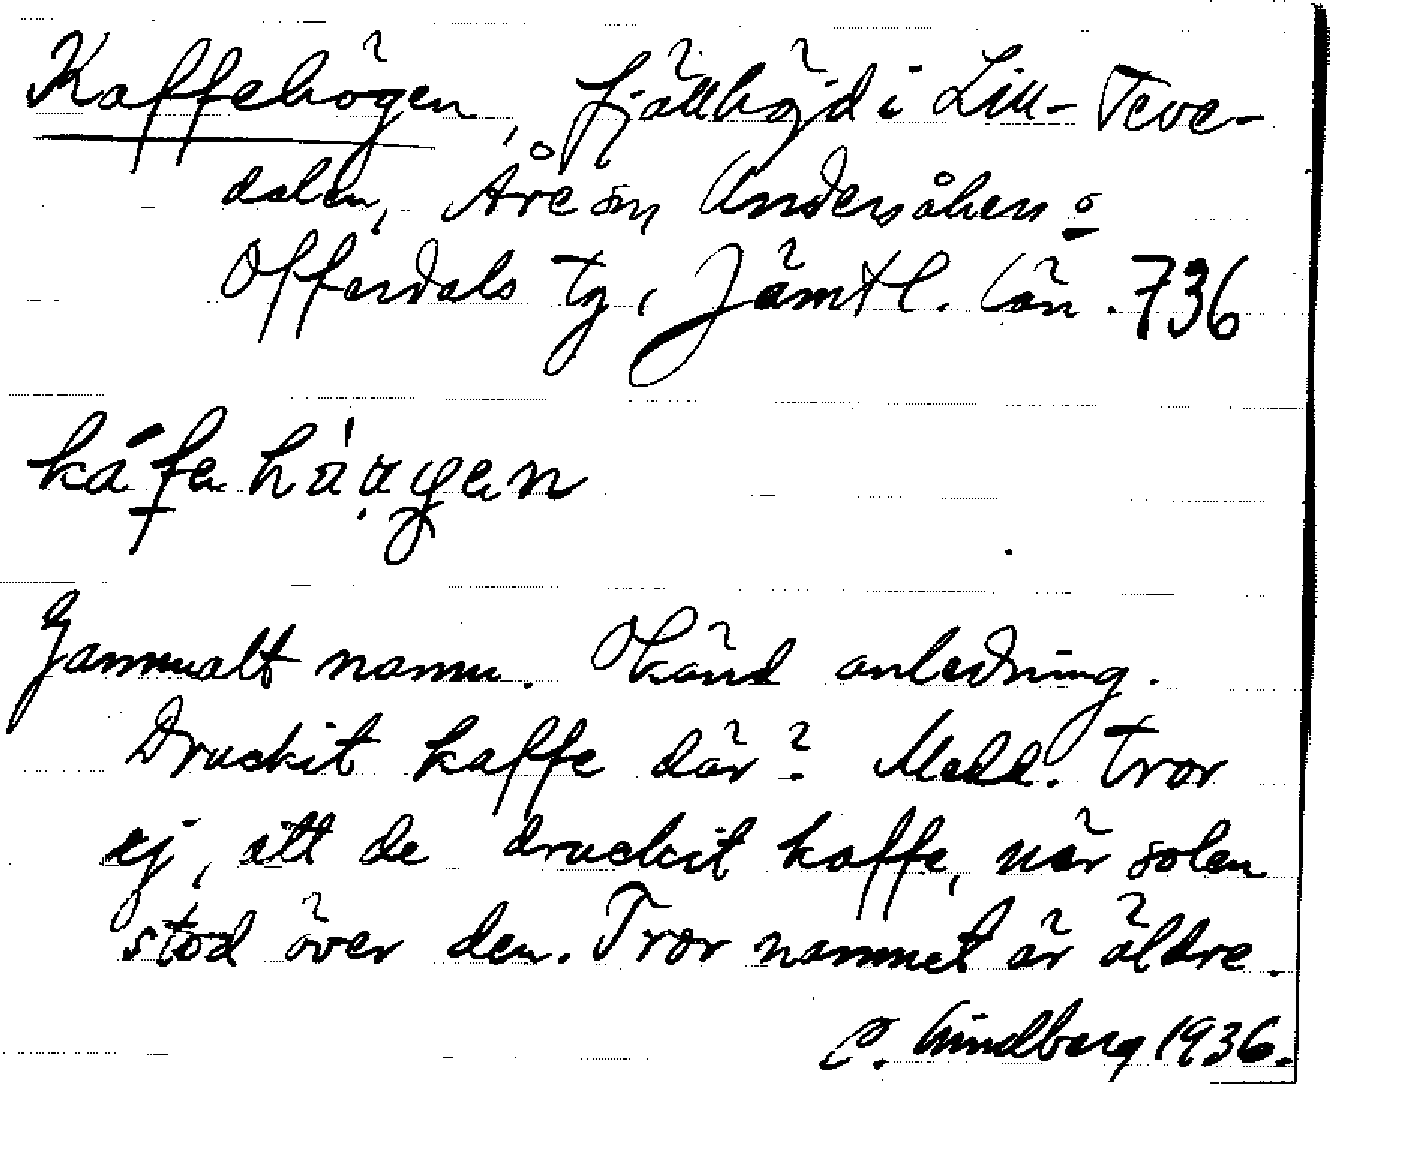 Kaffehögen, fjällhöjd i Lill-Teve-
dalen, Åre sn, Undersåkers o
Offerdals tg, Jämtl. län. 736
Gammalt namn. Okänd anledning.
Druckit kaffe där? Medd. tror
ej, att de druckit kaffe, när solen
stod över den. Tror namnet är äldre.
C. Lindberg 1936.